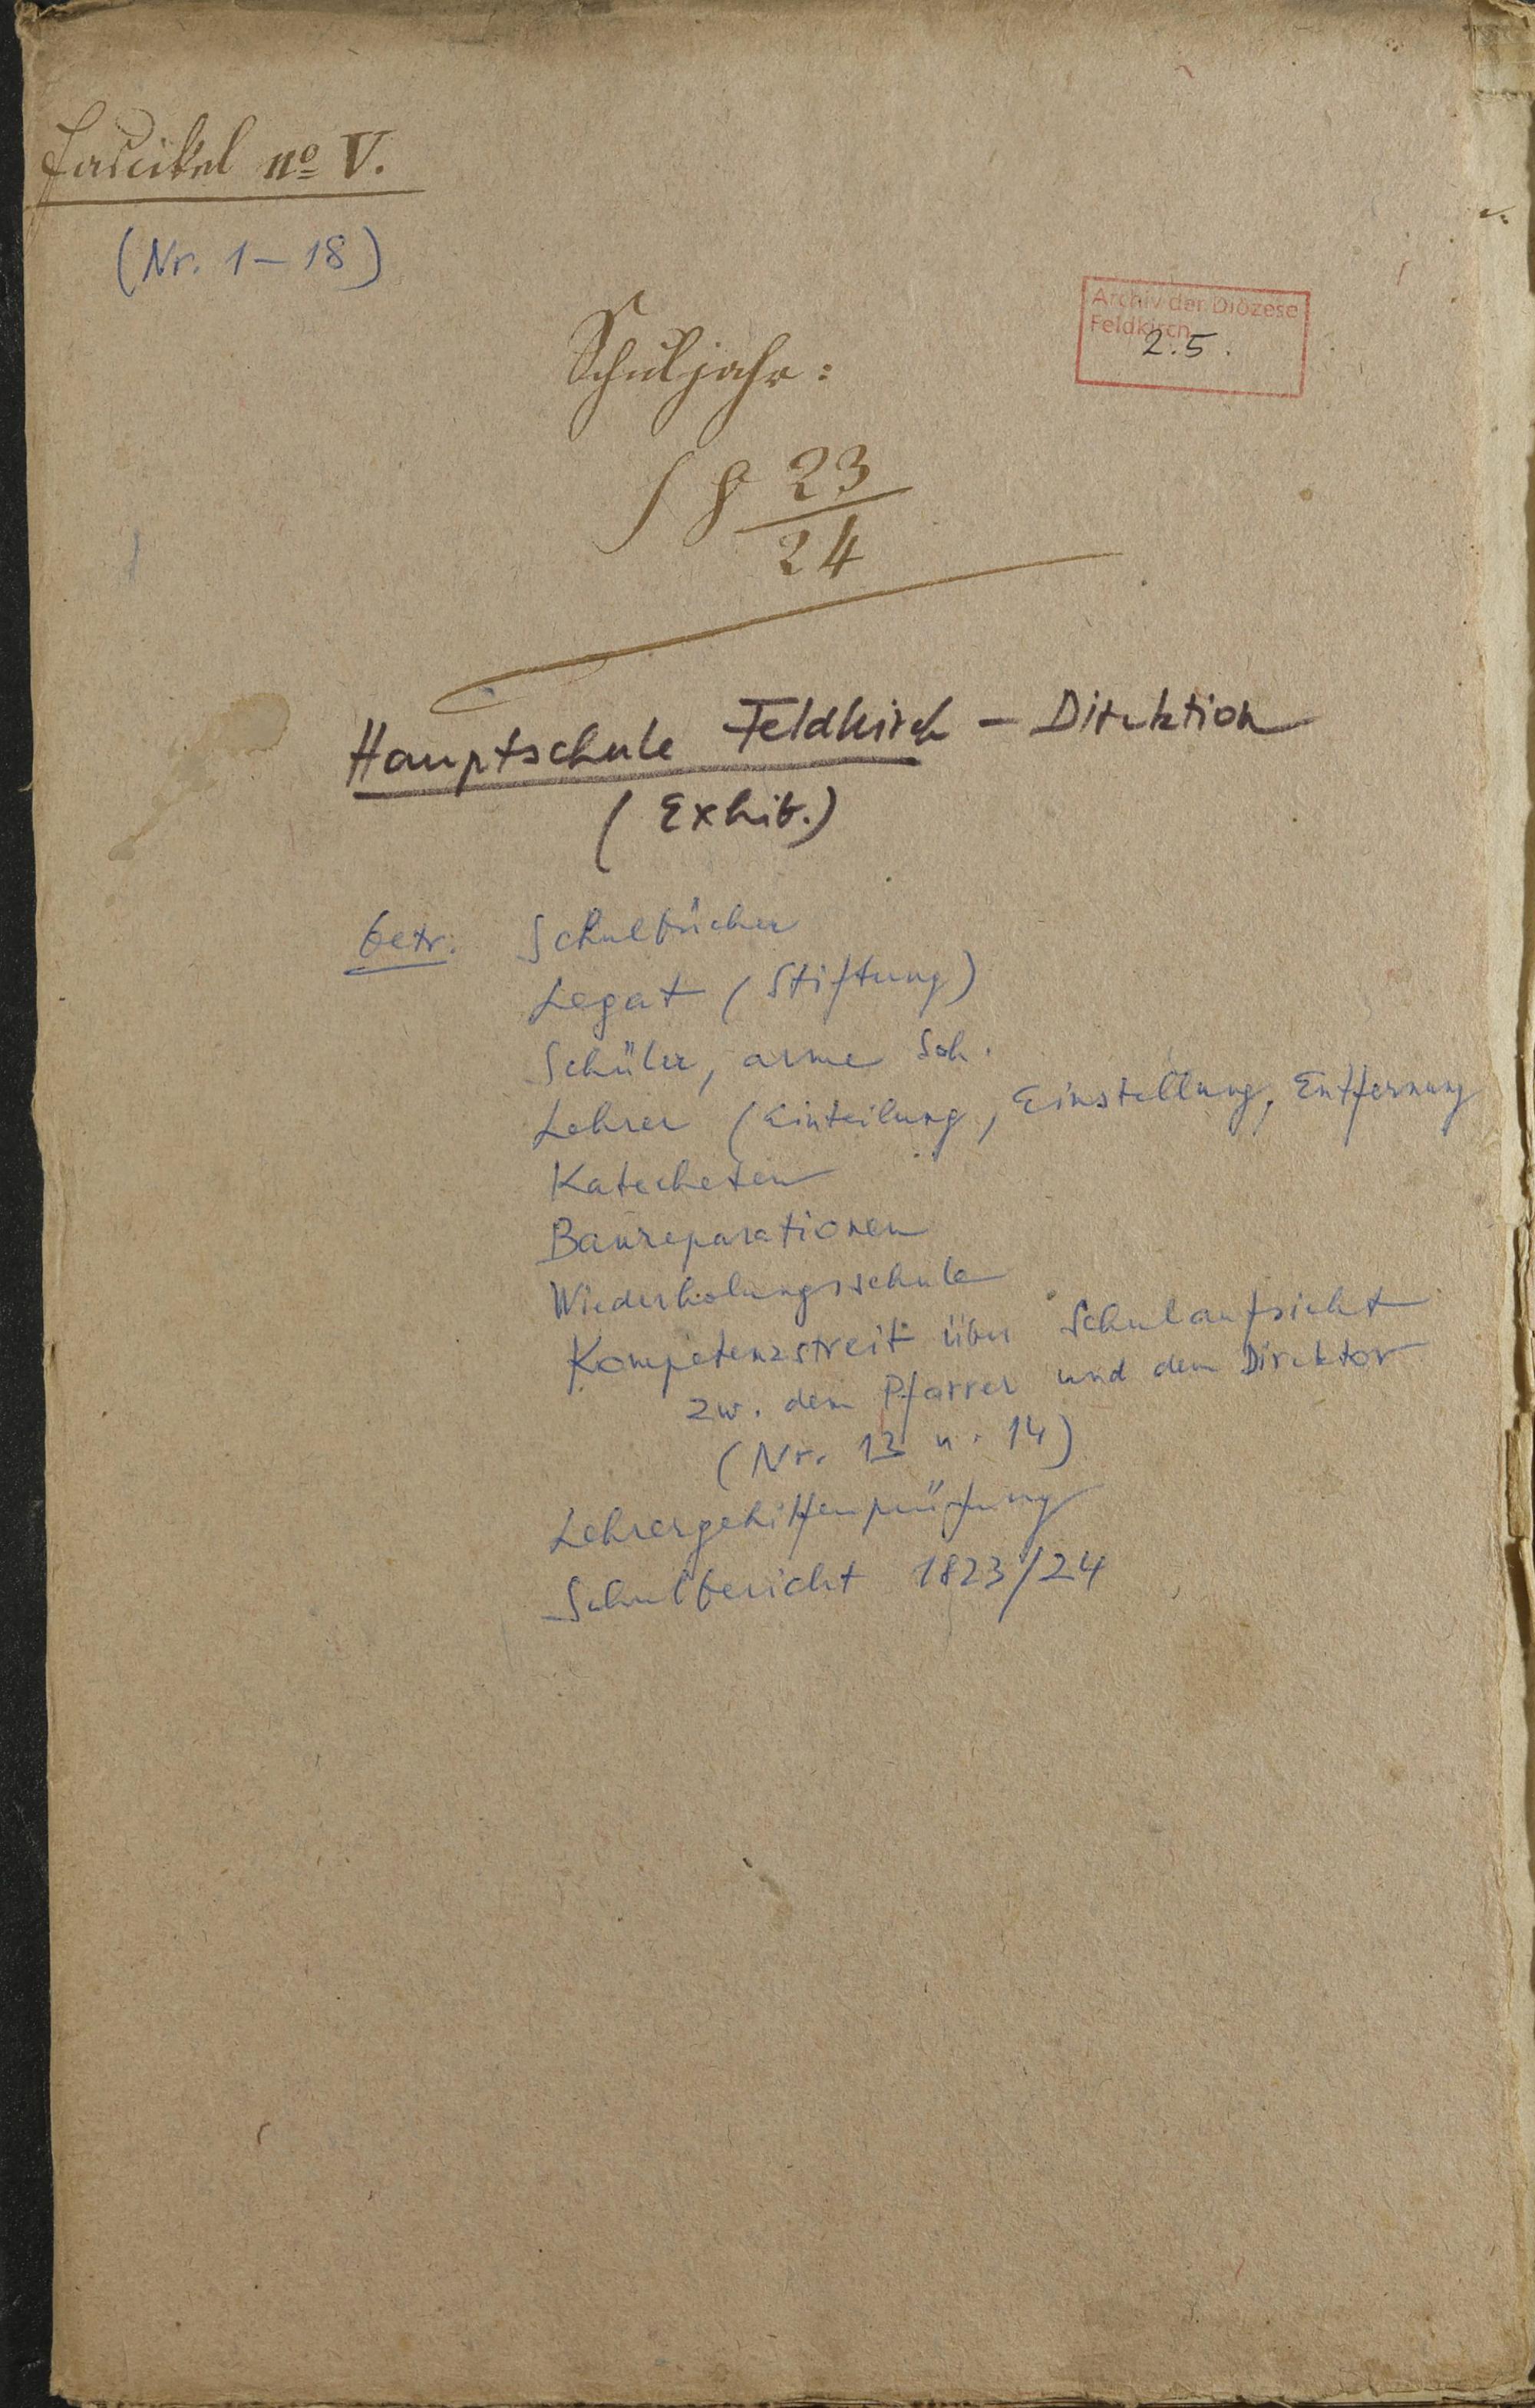 Fascikel nº V.
(Nr. 1 – 18)
Archiv der Diözese
Feldkirch
2.5.
Schuljahr:
18 23/24
Hauptschule Feldkirch – Direktion
(Exhib.)
betr. Schulbücher
Legat (Stiftung)
Schüler, arme Sch.
Lehrer (Einteilung, Einstellung, Entfernung
Katecheten
Baureparationen
Wiederholungsschule
Kompetenzstreit über Schulaufsicht
zw. dem Pfarrer und dem Direktor
(Nr. 13 u. 14)
Lehrergehilfenprüfung
Schulbericht 1823/24